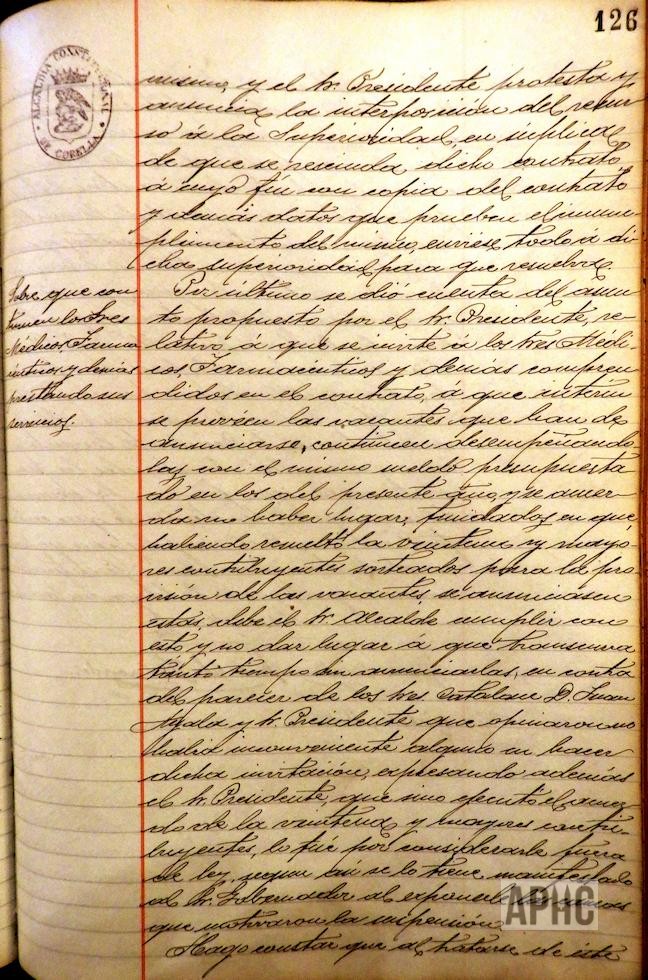 126
ALCALDIA CONSTITUCIONAL DE CORELLA
mismo, y el Sr. Presidente protesta y
anuncia la interposición del recur-
so á la Superioridad, en súplica
de que se rescinda dicho contrato,
á cuyo fin con copia del contrato
y demás datos que prueben el incum-
plimiento del mismo, enviese todo á di-
cha superioridad para que resuelva.
Sobre que con
tinuen los Sres
Médicos, Farma
céuticos y demás
prestando sus
servicios.
Por último se dió cuenta del asun-
to propuesto por el Sr. Presidente, re-
lativo á que se invite á los Sres Médi-
cos, Farmacéuticos y demas compren
didos en el contrato, á que interin
se provéen las vacantes que han de
anunciarse, continuen desempeñando
las con el mismo sueldo presupuesta
do en los del presente año, y se acuer-
da no haber lugar, fundados en que
habiendo resuelto la veintena y mayo-
res contribuyentes sorteados para la pro-
visión de las vacantes, se anunciasen
estas, debe el Sr. Alcalde cumplir con
esto y no dar lugar á que transcurra
tanto tiempo sin anunciarlas, en contra
del parecer de los Sres Catalan D. Juan
Ayala y Sr. Presidente que opinaron no
habia inconveniente alguno en hacer
dicha invitación, expresando además
el Sr. Presidente, que sino ejecutó el acuer-
do de la veintena y mayores contri-
buyentes, lo fué por considerarle fuera
de ley, segun asi se lo tiene manifestado
al Sr. Gobernador al exponerle las causas
que motivaron la suspensión.
Hago constar que al tratarse de este
APHC